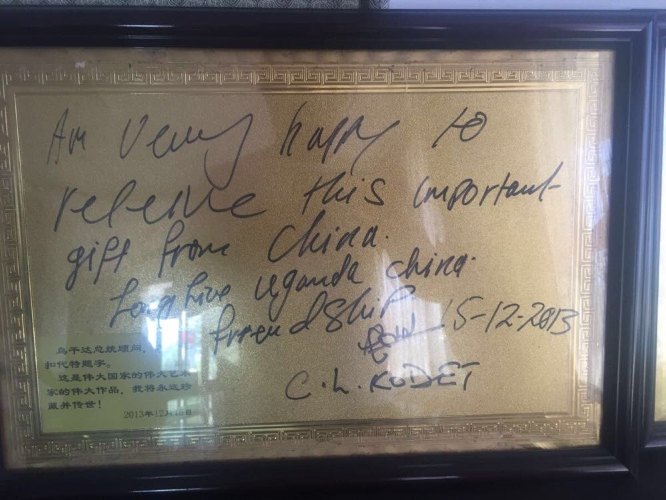 Am very happy to
receive this important
gift from China.
Long live Uganda China
friendship
15-12-2013
C. L. KODET
乌干达总统顾问，
扣代特题字。
这是伟大国家的伟大艺术
家的伟大作品，我将永远珍
藏并传世！
2013年12月15日